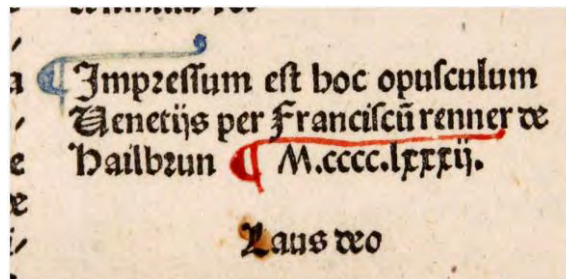 ¶ Impreſſum eſt hoc opuſculum
Uenetijs per Franciſcū renner de
Hailbrun ¶ M.cccc.lxxxij.
Laus deo